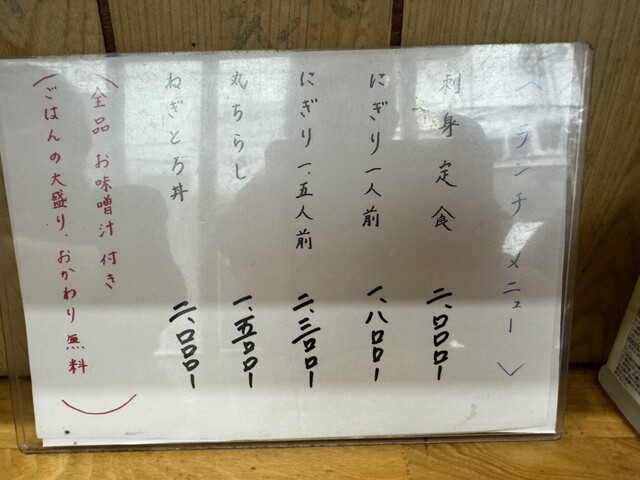 〈ランチメニュー〉
刺身定食 二、〇〇〇ー
にぎり一人前 一、八〇〇ー
にぎり一、五人前 二、三〇〇ー
丸ちらし 一、五〇〇ー
ねぎとろ丼 二、〇〇〇ー
(全品 お味噌汁付き
(ごはんの大盛り、おかわり無料)